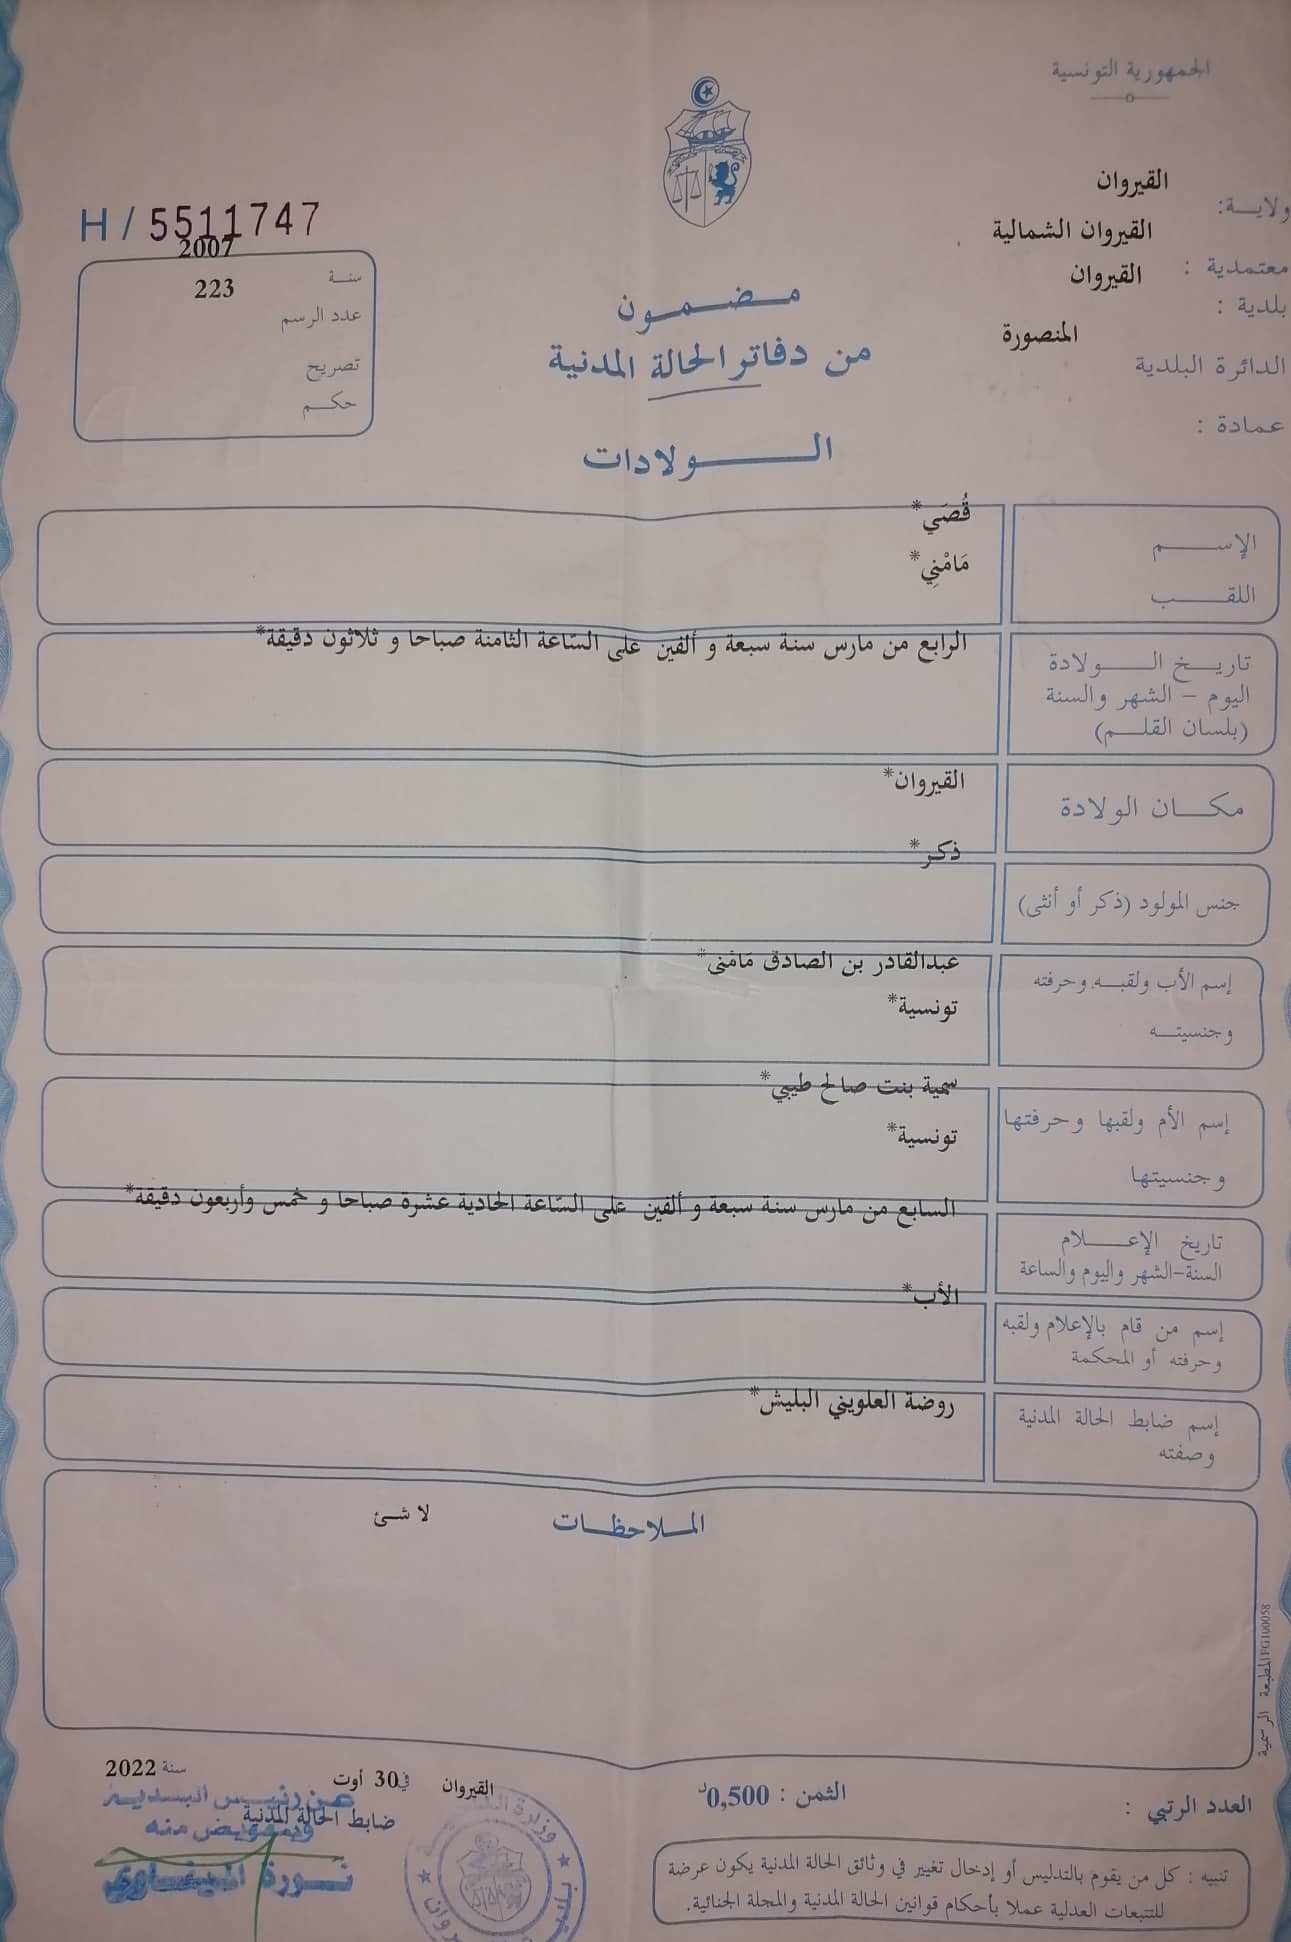 الجمهورية التونسية
ولايــة: القيروان
معتمدية : القيروان الشمالية
بلدية : القيروان
الدائرة البلدية المنصورة
عمادة :
H / 5511747
سنـة 2007
عدد الرسم 223
تصريح
حكــم
مـضـمـون
من دفاتر الحالة المدنية
الــولادات
الإســم قُصَي*
اللقــب مَامْنِي*
تاريـخ الــولادة
اليوم – الشهر والسنة
(بلسان القلـم)
الرابع من مارس سنة سبعة و ألفين على السّاعة الثامنة صباحا و ثلاثون دقيقة*
مكــان الولادة القيروان*
جنس المولود (ذكر أو أنثى) ذكر*
إسم الأب ولقبـه وحرفته عبدالقادر بن الصادق مَامْني*
وجنسيتــه تونسية*
إسم الأم ولقبها وحرفتها سمية بنت صالح طيبي*
وجنسيتها تونسية*
تاريخ الإعــلام
السنة-الشهر واليوم والساعة
السابع من مارس سنة سبعة و ألفين على السّاعة الحادية عشرة صباحا و خمس وأربعون دقيقة*
إسم من قام بالإعلام ولقبه
وحرفته أو المحكمة
الأب*
إسم ضابط الحالة المدنية
وصفته
روضة العلويني البليش*
المـلاحظـات
لا شئ
المطبعة الرسمية FG100058
القيروان في 30 أوت سنة 2022
ضابط الحالة المدنية
عن رئيس البلدية
وبتفويض منه
نورة
العدد الرتبي :
الثمن : 0,500د
تنبيه : كل من يقوم بالتدليس أو إدخال تغيير في وثائق الحالة المدنية يكون عرضة
للتتبعات العدلية عملا بأحكام قوانين الحالة المدنية والمجلة الجنائية.